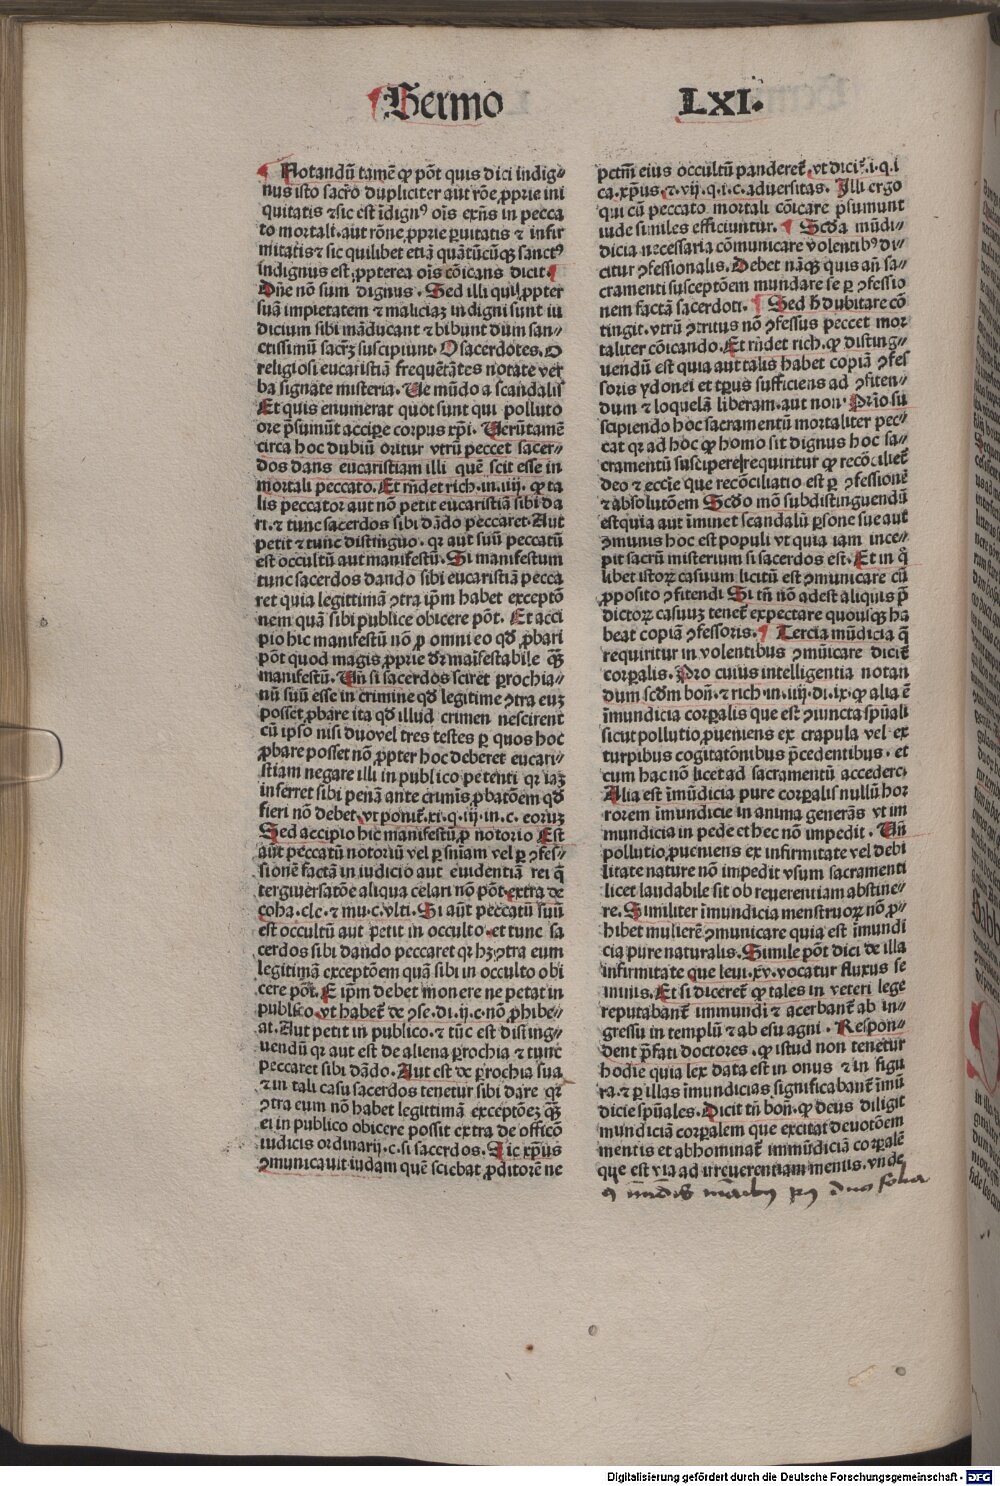 Sermo LXI.
Notandū tamē ꝙ pōt quis dici indig⸗
nus isto sacrō dupliciter aut rōe ꝓprie ini
quitatis ⁊ sic est īdignꝰ oīs exñs in pecca
to mortali. aut rōne ꝓprie ꝑuitatis ⁊ infir
mitatis ⁊ sic quilibet etiā quātūcūqꝫ sanctꝰ
indignus est ꝓpterea oīs cōicans dicit.
Dñe nō sum dignus. Sed illi qui ꝓpter
suā impietatem ⁊ maliciaꝫ indigni sunt iu
dicium sibi māducant ⁊ bibunt dum san⸗
ctissimū sacrꝫ suscipiunt. O sacerdotes. O
religiosi eucaristiā frequētātes notate ver
ba signate misteria. Ue mūdo a scandalis
Et quis enumerat quot sunt qui polluto
ore p̄sumūt accipe corpus xp̄i. Uerūtamē
circa hoc dubiū oritur vtrū peccet sacer⸗
dos dans eucaristiam illi quē scit esse in
mortali peccato. Et rñdet rich. in. iiij. ꝙ ta
lis peccator aut nō petit eucaristiā sibi da
ri. ⁊ tunc sacerdos sibi dādo peccaret. Aut
petit ⁊ tunc distinguo. qr aut suū peccatū
est occultū aut manifestū. Si manifestum
tunc sacerdos dando sibi eucaristiā pecca
ret quia legittimā ꝯtra ip̄m habet exceptō
nem quā sibi publice obicere pōt. Et acci
pio hic manifestū nō ꝓ omni eo qd̄ ꝓbari
pōt quod magis ꝓprie dr̄ maīfestabile qꝫ̄
manifestū. Uñ si sacerdos sciret ꝑrochia⸗
nū suū esse in crimine qd̄ legitime ꝯtra euꝫ
posset ꝓbare ita qd̄ illud crimen nescirent
cū ipso nisi duo vel tres testes ꝑ quos hoc
ꝓbare posset nō ꝓpter hoc deberet eucari⸗
stiam negare illi in publico petenti qr iaꝫ
inferret sibi penā ante crimīs ꝓbatōem qd̄
fieri nō debet. vt ponit̄. xi. q. iij. in. c. eoruꝫ
Sed accipio hic manifestū ꝓ notorio Est
aūt peccatū notoriū vel ꝑ sniam vel ꝑ ꝯfes⸗
sionē factā in iudicio aut euidentiā rei q̄
tergiuersatōe aliqua celari nō pōt. extra de
coha. cle. ⁊ mu. c. vlti. Si aūt peccatū suū
est occultū aut petit in occulto. et tunc sa
cerdos sibi dando peccaret qr hꝫ ꝯtra eum
legitimā exceptōem quā sibi in occulto obi
cere pōt. E ip̄m debet monere ne petat in
publico. vt habet̄ de ꝯse. di. ij. c. nō ꝓhibe⸗
at. Aut petit in publico. ⁊ tūc est disting⸗
uendū qr aut est de aliena ꝑrochia ⁊ tunc
peccaret sibi dādo. Aut est de ꝑrochia sua
⁊ in tali casu sacerdos tenetur sibi dare qr
ꝯtra eum nō habet legittimā exceptōeꝫ qꝫ̄
ei in publico obicere possit extra de officō
iudicis ordinarij. c. si sacerdos. Sic xp̄us
ꝯmunicauit iudam quē sciebat ꝓditorē ne
pctm̄ eius occultū panderet̄. vt dicit. i. q. i
ca. xp̄us. ⁊. vij. q. i. c. aduersitas. Illi ergo
qui cū peccato mortali cōicare p̄sumunt
iude similes efficiuntur. Scd̄a mūdi⸗
dicia necessaria cōmunicare volentibꝰ di⸗
citur ꝯfessionalis. Debet nāqꝫ quis añ sa⸗
cramenti susceptōem mundare se ꝑ ꝯfessio
nem factā sacerdoti. Sed h̄ dubitare cō
tingit. vtrū ꝯtritus nō ꝯfessus peccet mor
taliter cōicando. Et rñdet rich. ꝙ disting⸗
uendū est quia aut talis habet copiā ꝯfes
soris ydonei et tp̄us sufficiens ad ꝯfiten⸗
dum ⁊ loquelā liberam. aut non. Prīo su
scipiendo hoc sacramentū mortaliter pec⸗
cat qr ad hoc ꝙ homo sit dignus hoc sa⸗
cramentū suscipere requiritur ꝙ recōciliet̄
deo ⁊ eccīe que recōciliatio est ꝑ ꝯfessionē
⁊ absolutōem Scd̄o mō subdistinguendū
est quia aut īminet scandalū ꝑsone sue aut
ꝯmunis hoc est populi vt quia iam ince⸗
pit sacrū misterium si sacerdos est. Et in q̄
libet istoꝝ casuum licitū est ꝯmunicare cū
ꝓposito ꝯfitendi Si tñ nō adest aliquis p̄
dictoꝝ casuuꝫ tenet̄ expectare quousqꝫ ha
beat copiā ꝯfessoris. Tercia mūdicia q̄
requiritur in volentibus ꝯmūicare dicit̄
corꝑalis. Pro cuius intelligentia notan
dum scd̄m bon̄. ⁊ rich. in. iiij. di. ix. ꝙ alia ē
īmundicia corꝑalis que est ꝯiuncta spūali
sicut pollutio ꝓueniens ex crapula vel ex
turpibus cogitatōnibus p̄cedentibus. et
cum hac nō licet ad sacramentū accedere.
Alia est īmūdicia pure corꝑalis nullū hor
rorem īmundicie in anima generās vt im
mundicia in pede et hec nō impedit. Uñ
pollutio ꝓueniens ex infirmitate vel debi
litate nature nō impedit vsum sacramenti
licet laudabile sit ob reuerentiam abstine⸗
re. Similiter īmundicia menstruoꝝ nō ꝓ⸗
hibet mulierē ꝯmunicare quia est īmundi
cia pure naturalis. Simile pōt dici de illa
infirmitate que leui. xv. vocatur fluxus se
minis. Et si diceret̄ ꝙ tales in veteri lege
reputabant̄ immundi ⁊ acerbant̄ ab in⸗
gressu in templū ⁊ ab esu agni. Respon⸗
dent p̄fati doctores. ꝙ istud non tenetur
hodie quia lex data est in onus ⁊ in figu
ra. ⁊ ꝑ illas īmundicias significabant̄ īmū
dicie spūales. Dicit tñ bon̄. ꝙ deus diligit
mundiciā corꝑalem que excitat deuotōem
mentis et abhominat̄ immūdiciā corꝑalē
que est via ad irreuerentiam mentis. vnde
Digitalisierung gefördert durch die Deutsche Forschungsgemeinschaft - DFG